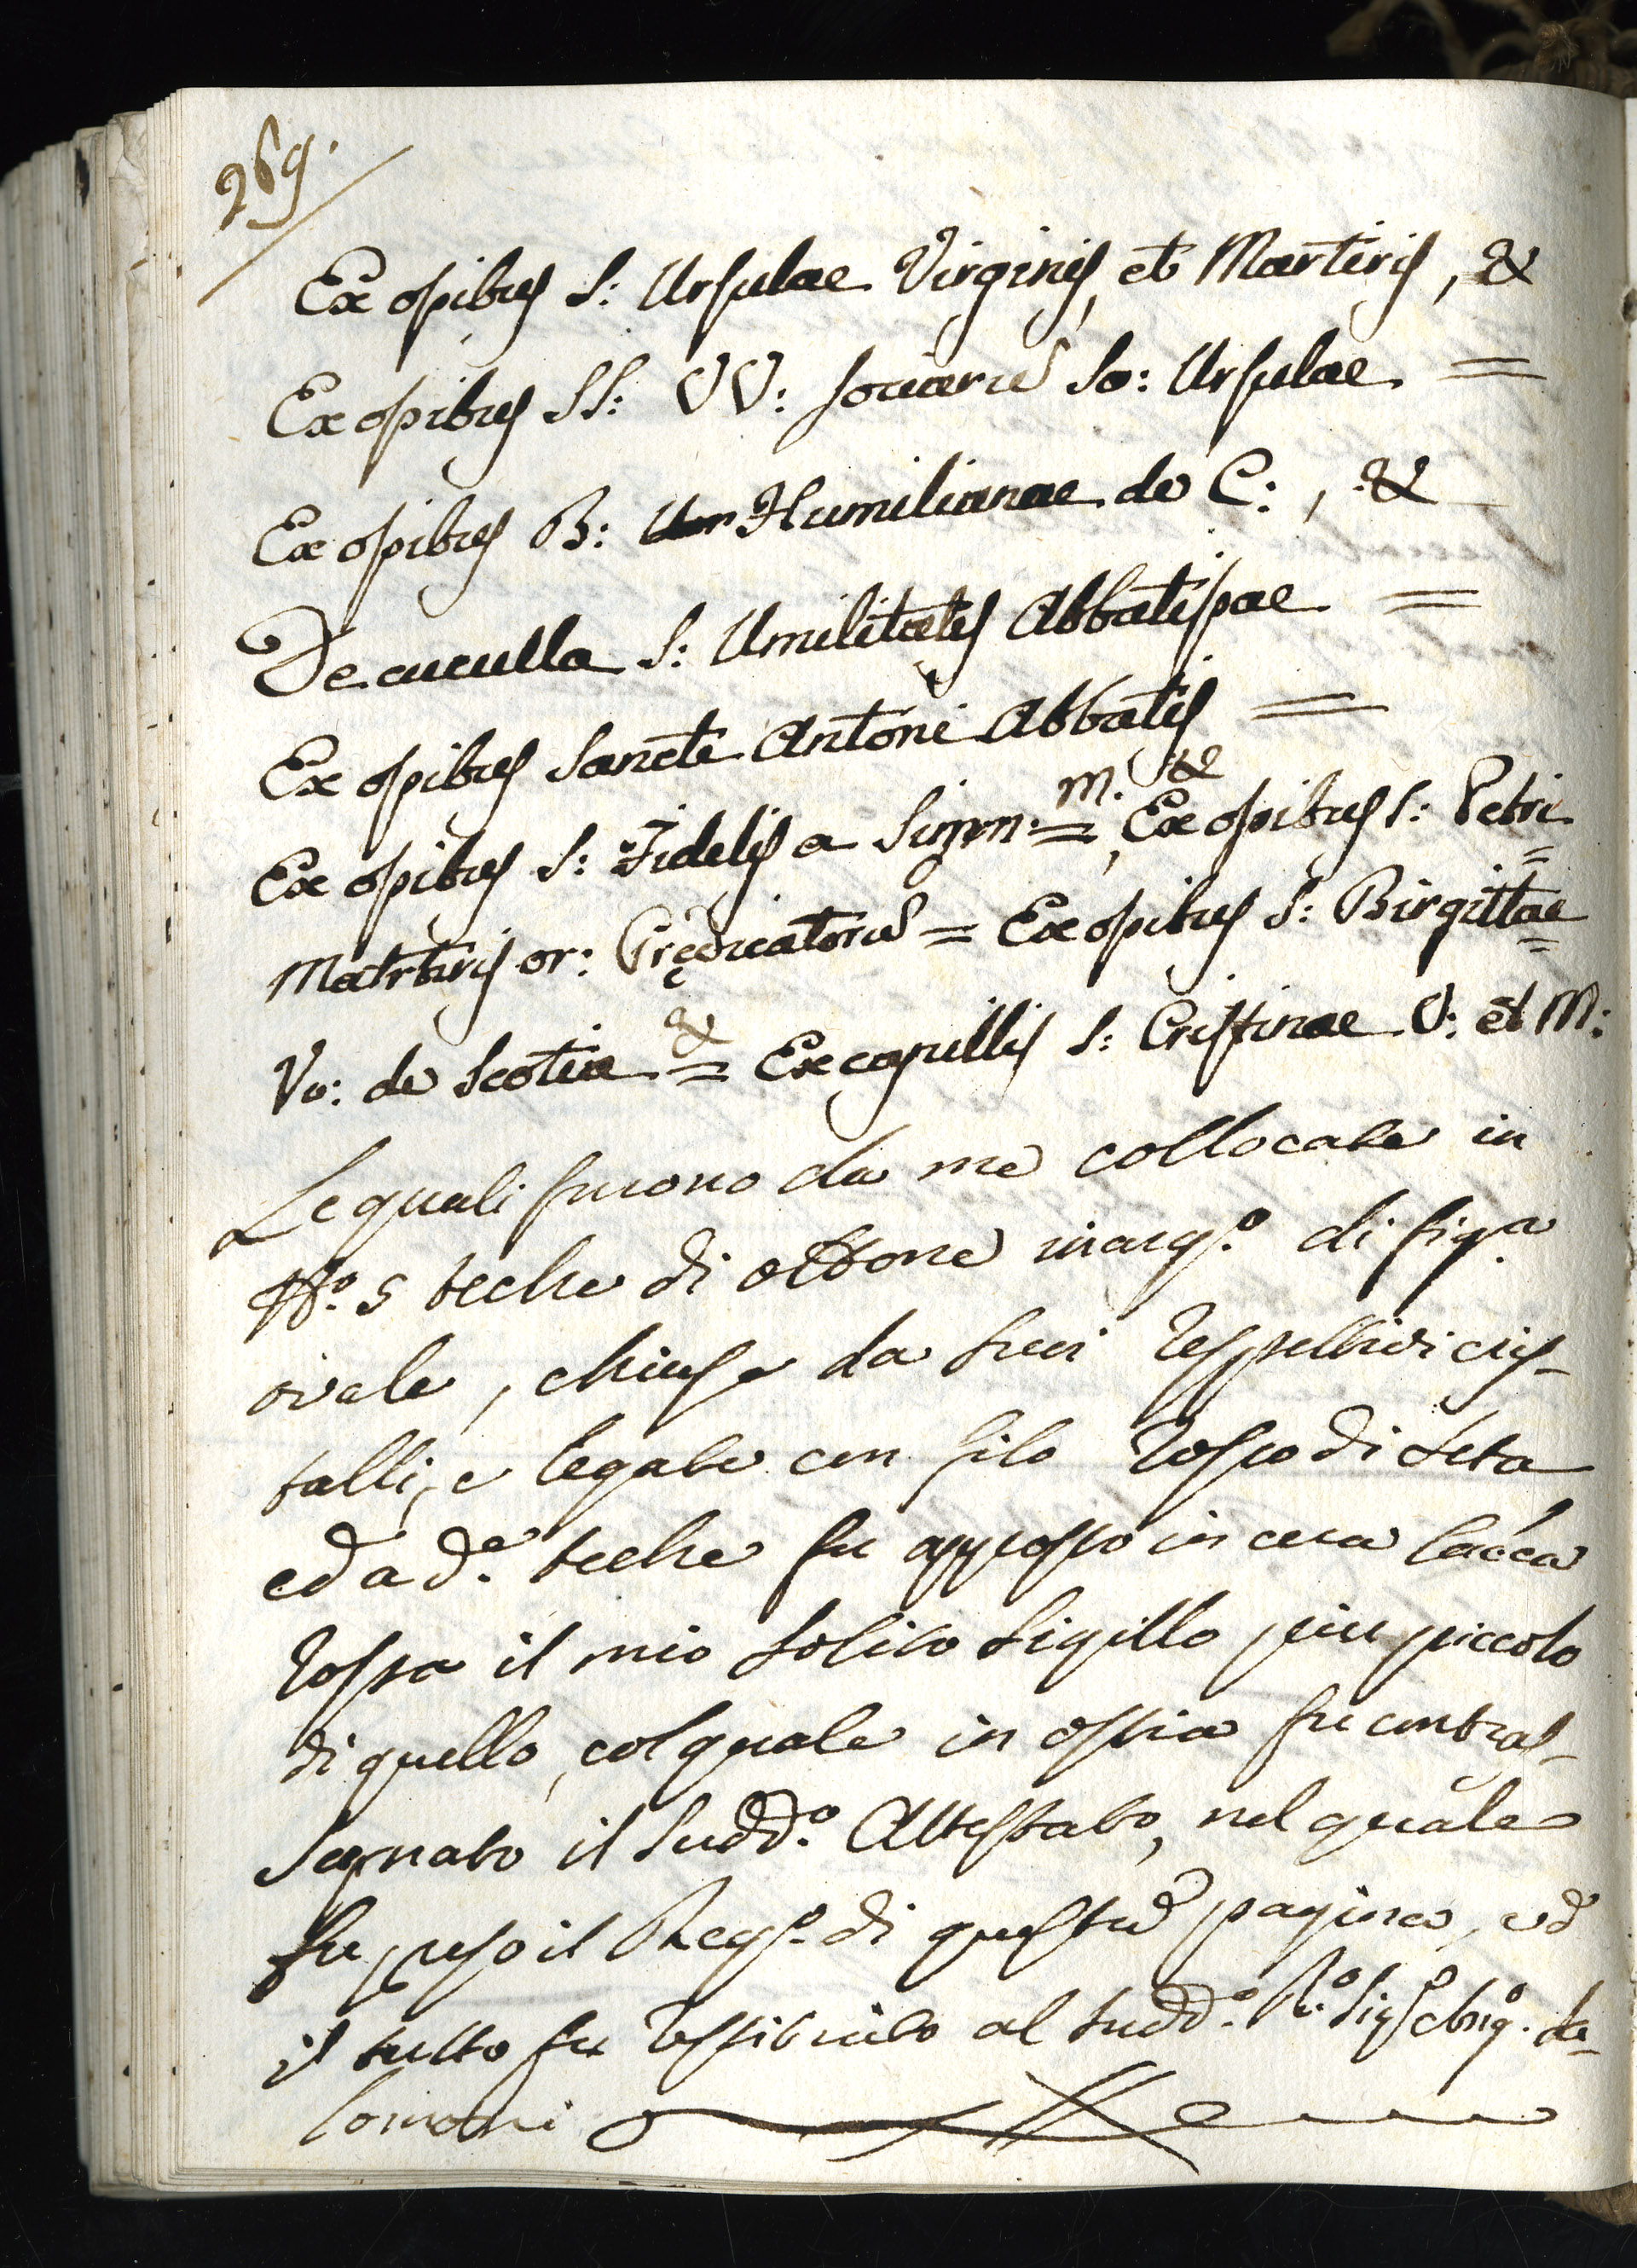 269.
Ex opibus S: Ursulae Virginis, et Martiris, &
Ex opibus SS: VV: sociarũ Sa: Ursulae =
Ex opibus B: Humilianae de C:, &
De cuculla S: Umilitatis Abbatissae =
Ex opibus Sancti Antoni Abbatis =
Ex opibus S: Fidelis a Sigm: = M. & Ex opibus S: Petri =
Matrtiris or: Prędicatorũ = Ex opibus S: Birgittae =
Va: de Scotia & = Ex capillis S: Cristinae V: et M:
Le quali furono da me collocate in
No. 5 teche di ottone inarg.o di fig.a
ovale, chiuse da suoi respettivi cris-
talli, e legate con filo rosso di seta
ed a d.e teche fu apposto in cera lacca
rossa il mio solito sigillo più piccolo
di quello, col quale in ostia fu contras-
segnato il sudd.o Attestato, nel quale
fu preso il Reg.o di questa pagina, ed
il tutto fu restituito al sudd.o R.o Sig. da-